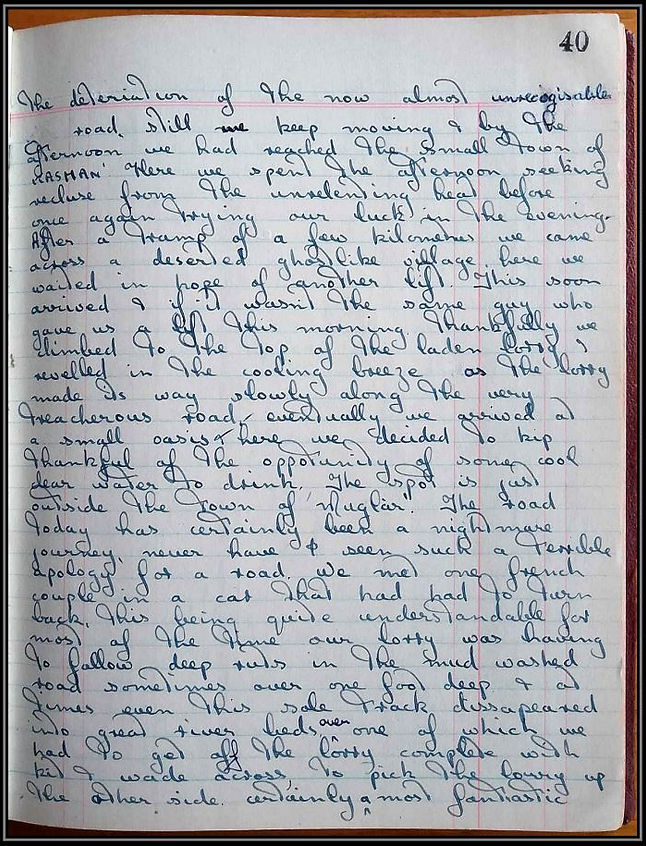 40
The deteriation of the now almost unrecogisable
road. still we keep moving & by the
afternoon we had reached the small town of
'RASMAN' Here we spent the afternoon seeking
recluse from the unrelenting heat before
once again trying our luck in the evening.
After a tramp of a few kilometres we came
across a deserted ghostlike village here we
waited in hope of another lift. This soon
arrived & if it wasn't the same guy who
gave us a lift this morning. Thankfully we
climbed to the top of the laden lorry &
revelled in the cooling breeze as the lorry
made its way slowly along the very
treacherous road, eventually we arrived at
a small oasis & here we decided to kip
thankful of the oppotunity of some cool
clear water to drink. The spot is just
outside the town of 'Muglar'. The road
today has certainly been a nightmare
journey, never have I seen such a terrible
apology for a road. we met one french
couple in a car that had had to turn
back. This being quite understandable for
most of the time our lorry was having
to follow deep ruts in the mud washed
road sometimes over one foot deep & at
times even this sole track dissapeared
into great river beds over one of which we
had to get off the lorry complete with
kit & wade across, to pick the lowry up
the other side. certainly a most fantastic